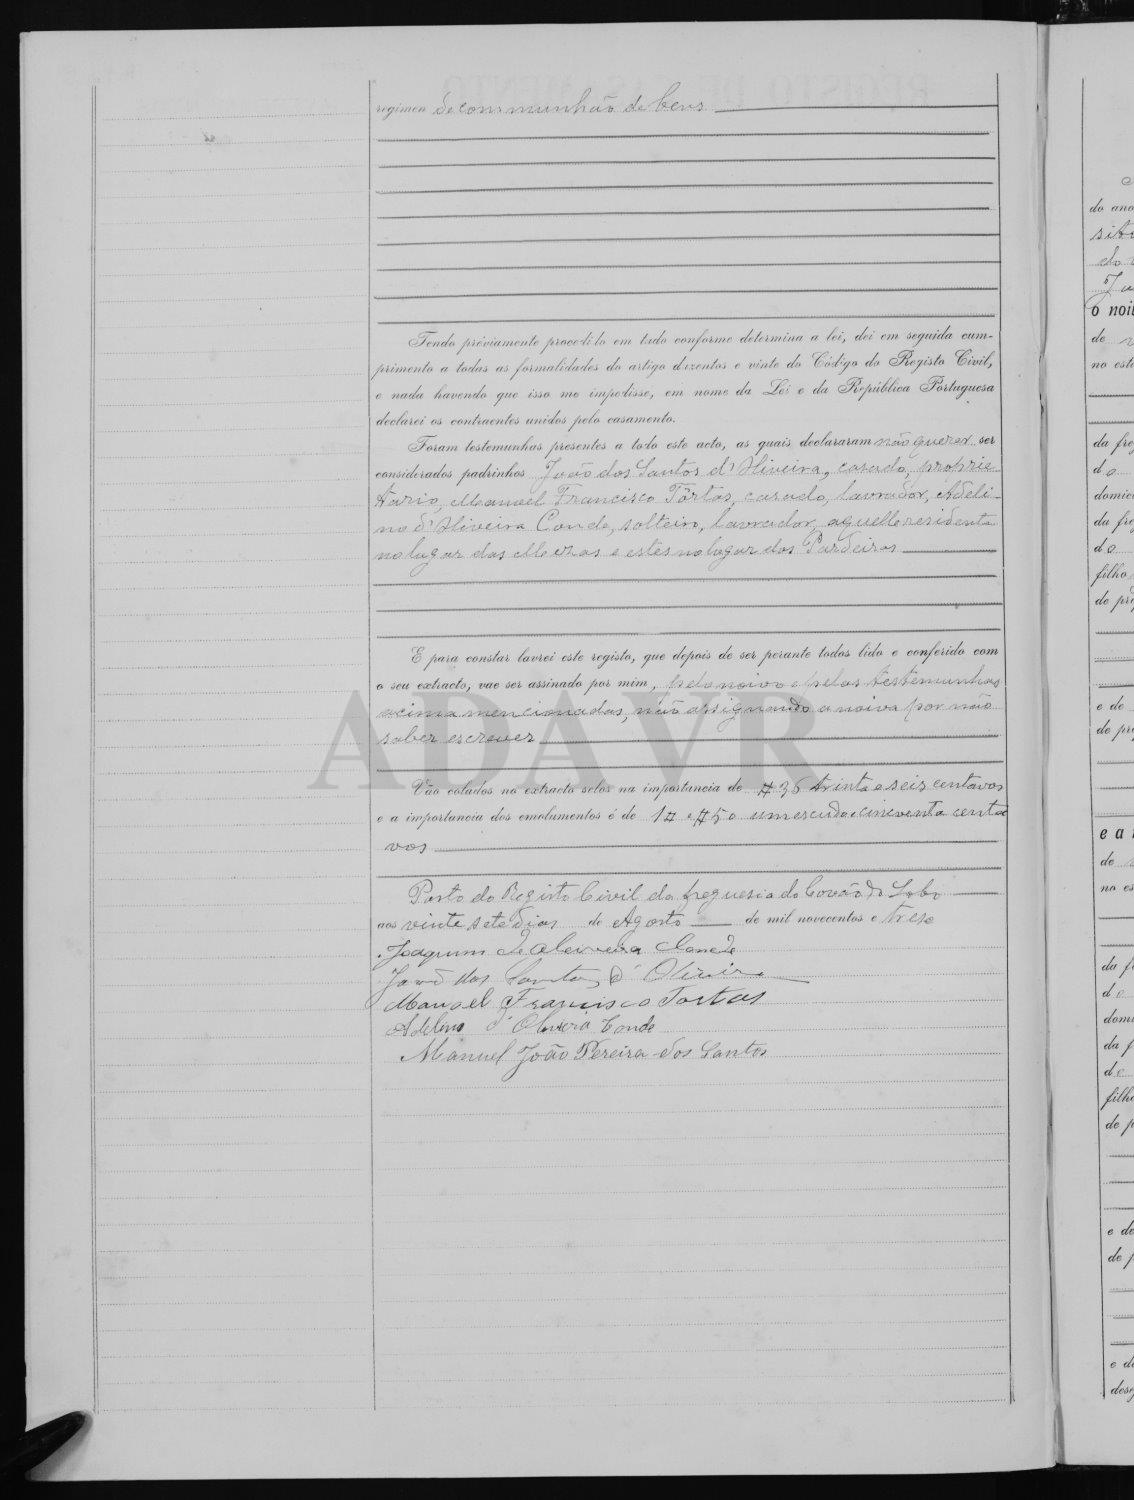 regimen de communhão de bens
Tendo préviamente procedido em tudo conforme determina a lei, dei em seguida cum-
primento a todas as formalidades do artigo duzentos e vinte do Código do Registo Civil,
e nada havendo que isso me impedisse, em nome da Lei e da República Portuguesa
declarei os contraentes unidos pelo casamento.
Foram testemunhas presentes a todo este acto, as quais declararam não querer ser
considerados padrinhos João dos Santos d'Oliveira, casado, proprie
tario, Manoel Francisco Tórtas, casado, lavrador, Adeli-
no d'Oliveira Conde, solteiro, lavrador, aquelle residente
no lugar das e estes no lugar dos Pardeiros
E para constar lavrei este registo, que depois de ser perante todos lido e conferido com
o seu extracto, vae ser assinado por mim, pelo noivo e pelas testemunhas
acima mencionadas, não assignando a noiva por não
saber escrever
Vão colados no extracto selos na importancia de #36 trinta e seis centavos
e a importancia dos emolumentos é de 1# e #50 um escudo e cincoenta centa
vos
Posto do Registo Civil da freguesia do Covão do Lobo
aos vinte sete dias de Agosto de mil novecentos e treze
Joaquim de Oliveira Conde
João dos Santos d'Oliveira
Manoel Francisco Tortas
Adelino d'Oliveira Conde
Manuel João Pereira dos Santos
ADAVR
do ano
o noi
de
no est
da fre
do
domic
da fre
do
filho
de pr
e de
de pr
e a
de
no es
da f
de
domi
da f
de
filh
de p
e de
de p
e d
des